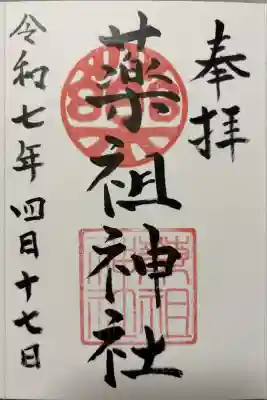 奉拝
薬祖神社
令和七年四日十七日